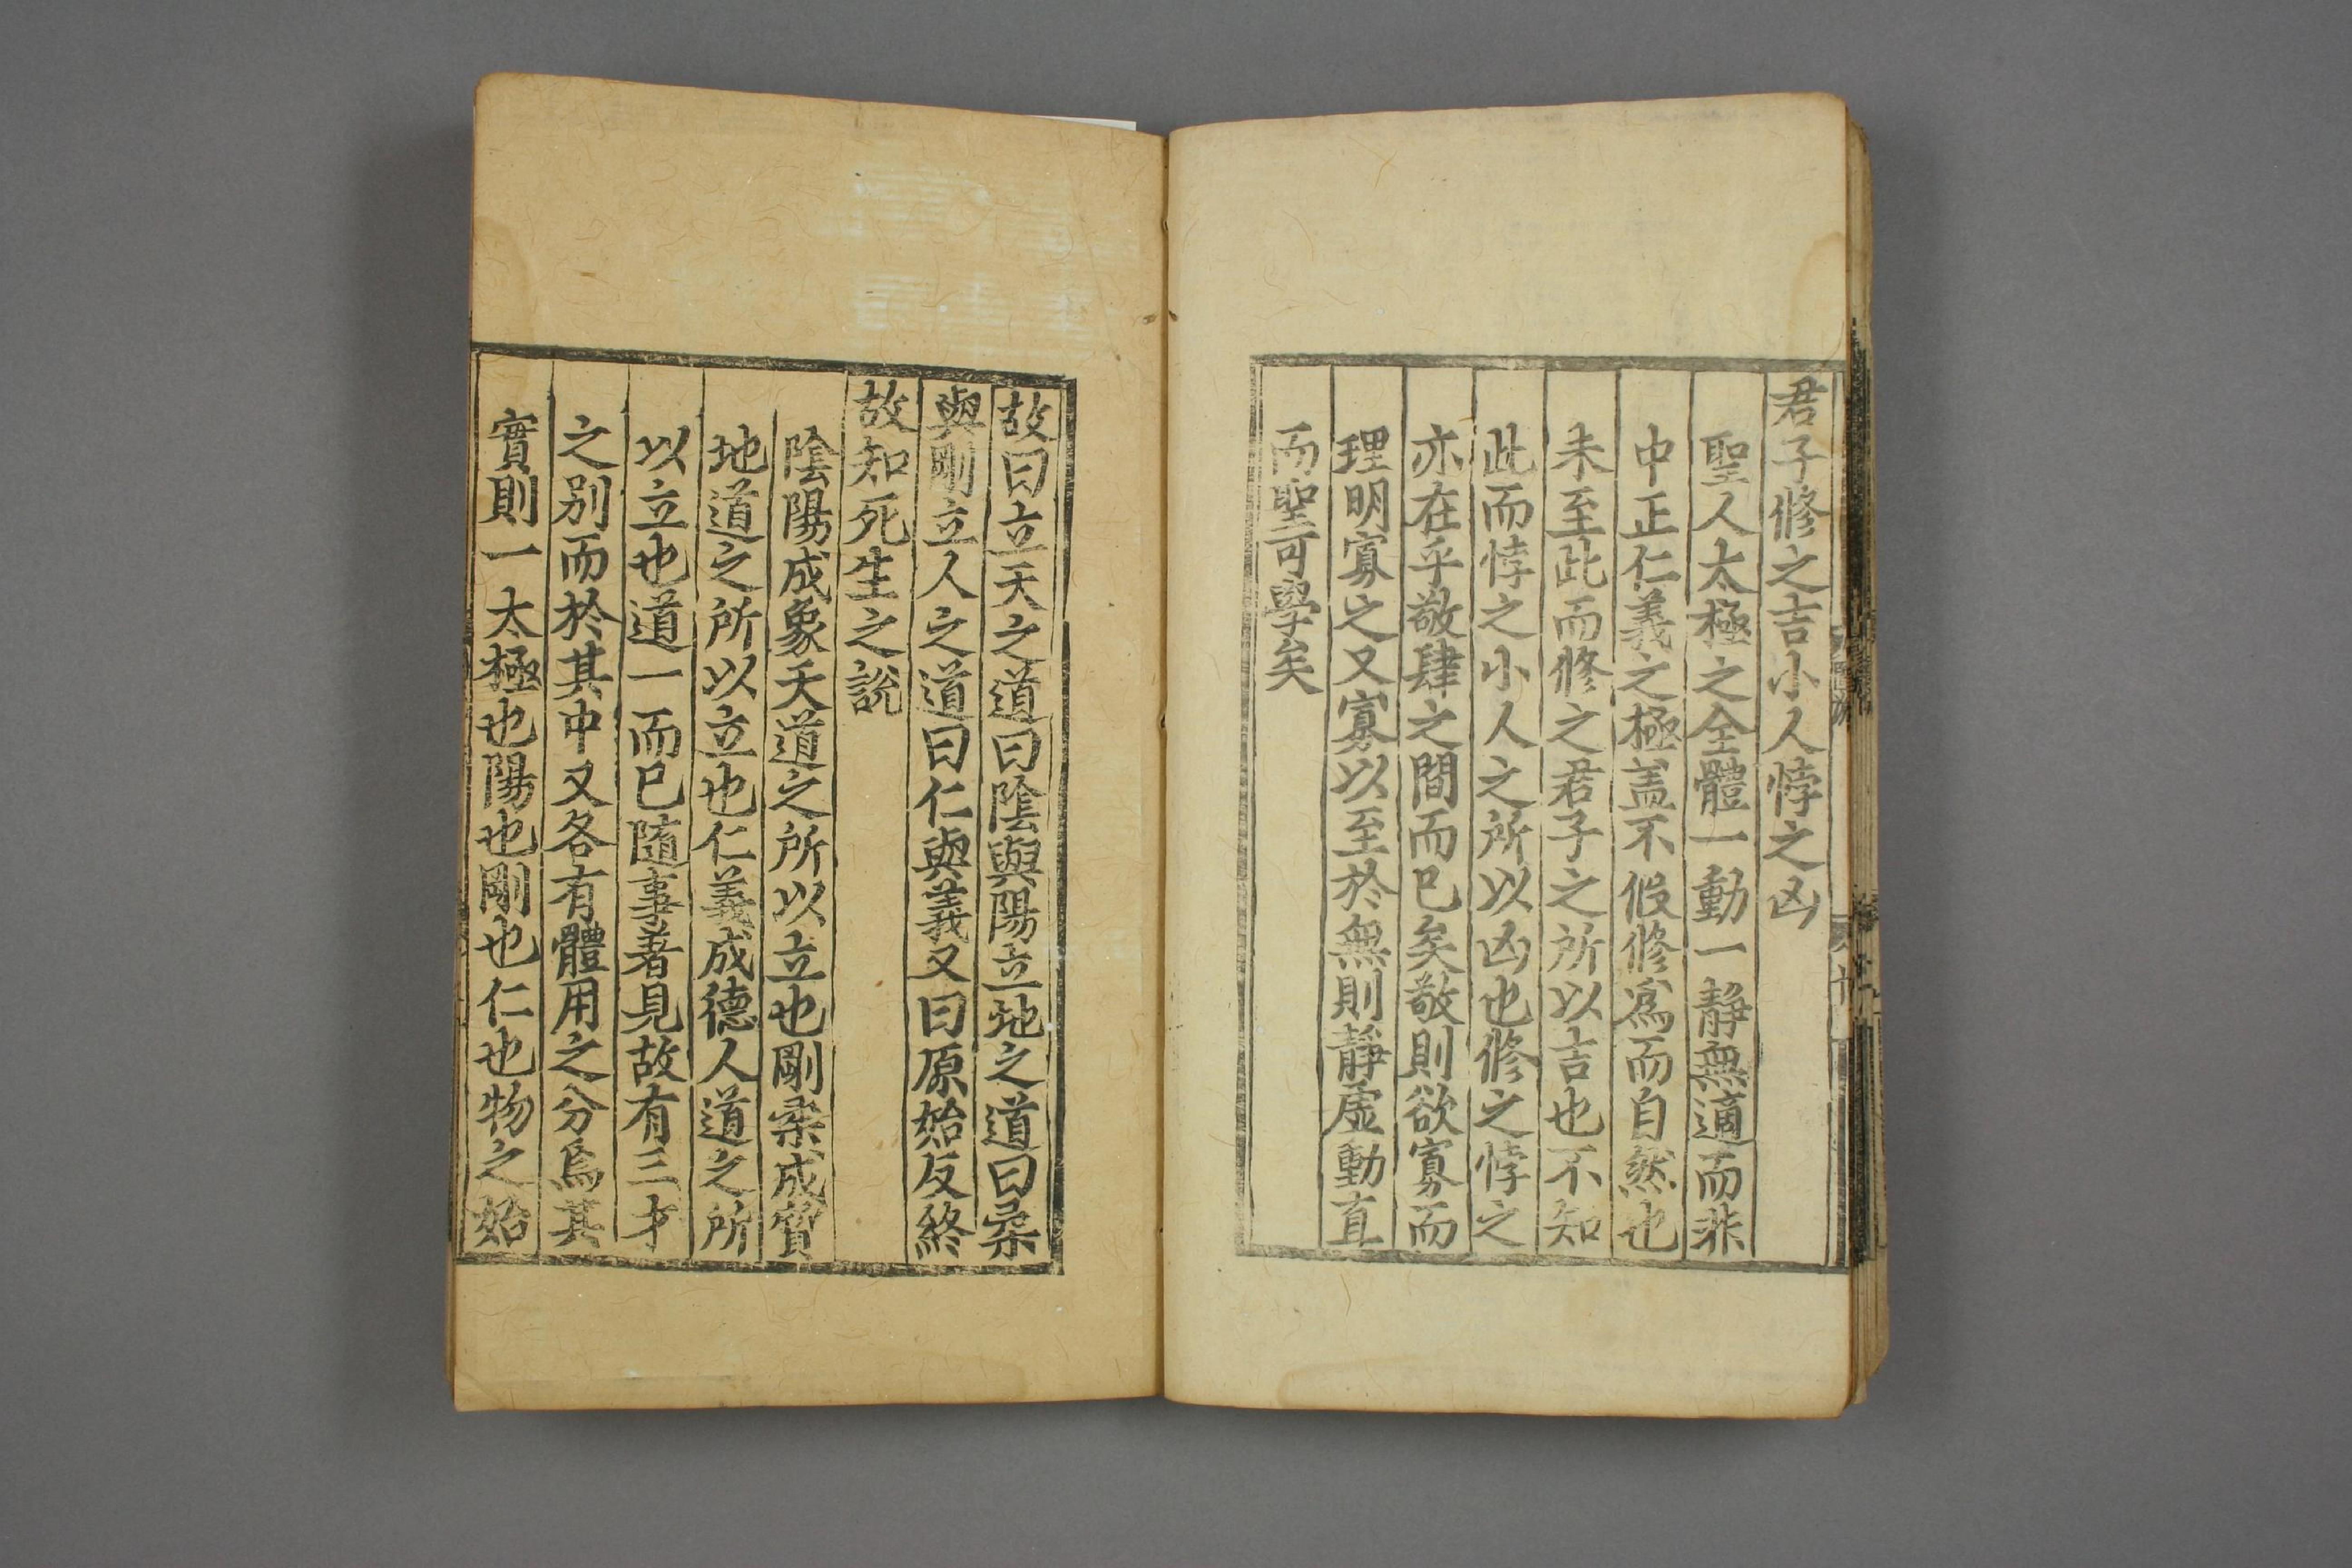 君子修之吉小人悖之凶
聖人太極之全體一動一靜無適而非
中正仁義之極盖不假修爲而自然也
未至此而修之君子之所以吉也不知
此而悖之小人之所以凶也修之悖之
亦在乎敬肆之間而已矣敬則欲寡而
理明寡之又寡以至於無則靜虛動直
而聖可學矣
故曰立天之道曰陰與陽立地之道曰柔
與剛立人之道曰仁與義又曰原始反終
故知死生之說
陰陽成象天道之所以立也剛柔成質
地道之所以立也仁義成德人道之所
以立也道一而已隨事著見故有三才
之别而於其中又各有體用之分焉其
實則一太極也陽也剛也仁也物之始